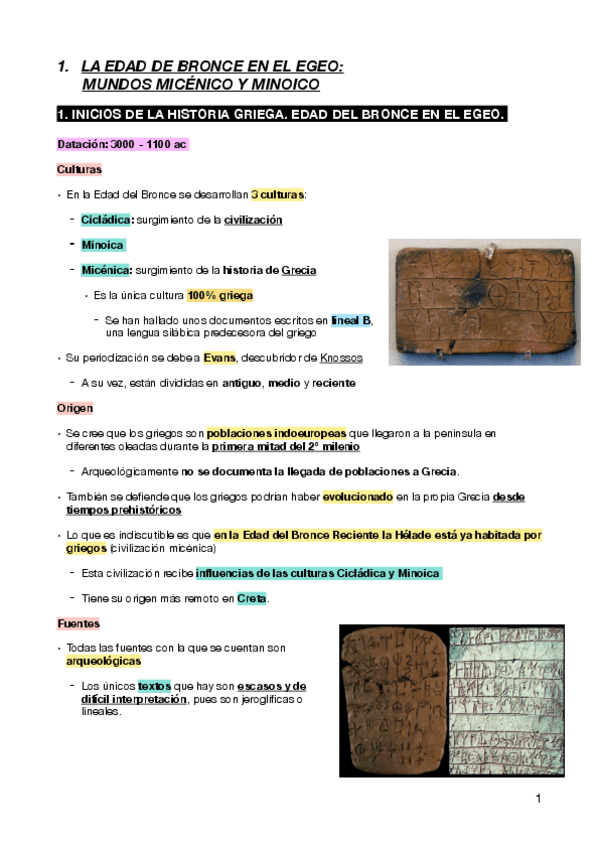 1. LA EDAD DE BRONCE EN EL EGEO:
MUNDOS MICÉNICO Y MINOICO
1. INICIOS DE LA HISTORIA GRIEGA. EDAD DEL BRONCE EN EL EGEO.
Datación: 3000 - 1100 ac
Culturas
• En la Edad del Bronce se desarrollan 3 culturas:
- Cicládica: surgimiento de la civilización
- Minoica
- Micénica: surgimiento de la historia de Grecia
• Es la única cultura 100% griega
- Se han hallado unos documentos escritos en lineal B,
una lengua silábica predecesora del griego
• Su periodización se debe a Evans, descubridor de Knossos
- A su vez, están divididas en antiguo, medio y reciente
Origen
• Se cree que los griegos son poblaciones indoeuropeas que llegaron a la península en
diferentes oleadas durante la primera mitad del 2º milenio
- Arqueológicamente no se documenta la llegada de poblaciones a Grecia.
• También se defiende que los griegos podrían haber evolucionado en la propia Grecia desde
tiempos prehistóricos
• Lo que es indiscutible es que en la Edad del Bronce Reciente la Hélade está ya habitada por
griegos (civilización micénica)
- Esta civilización recibe influencias de las culturas Cicládica y Minoica
- Tiene su origen más remoto en Creta.
Fuentes
• Todas las fuentes con la que se cuentan son
arqueológicas
- Los únicos textos que hay son escasos y de
difícil interpretación, pues son jeroglíficas o
lineales.
1